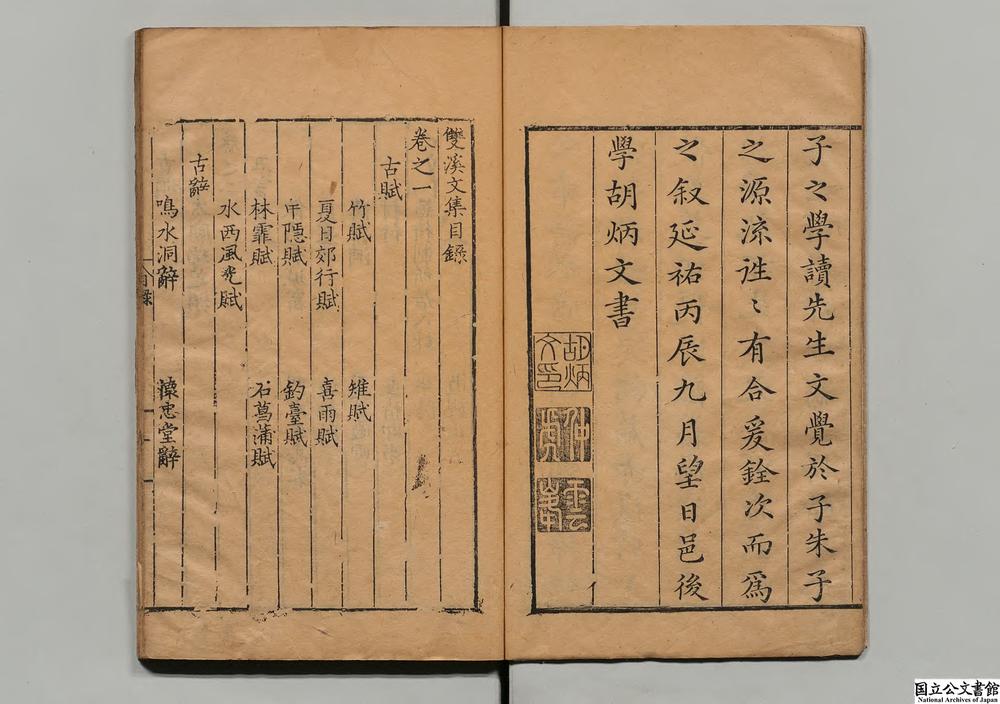 子之學讀先生文覺於子朱子
之源流徃〻有合爰銓次而爲
之叙延祐丙辰九月望日邑後
學胡炳文書
胡炳文印
仲虎
雲峯
雙溪文集目錄
卷之一
古賦
竹賦 雉賦
夏日郊行賦 喜雨賦
中隱賦 釣臺賦
林霏賦 石菖蒲賦
水西風光賦
古辭
鳴水洞辭 懷忠堂辭
目錄
一
国立公文書館
National Archives of Japan